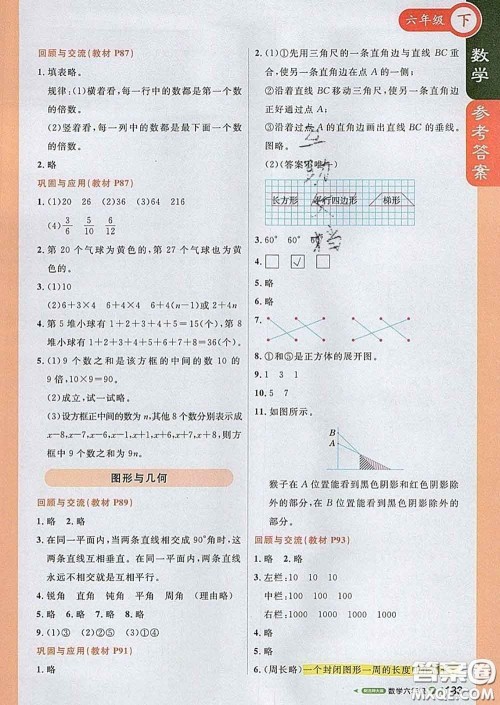 六年级 下
数学
参考答案
回顾与交流(教材 P87)
1. 填表略。
规律:(1)横着看,每一行中的数都是第一个数
的倍数。
(2)竖着看,每一列中的数都是第一个数
的倍数。
2. 略
巩固与应用(教材 P87)
1. (1)20 26 (2)36 34 (3)64 216
(4) 3/6 5/10 6/12
2. 第 20 个气球为黄色的,第 27 个气球也为黄
色的。
3. (1)10
(2)6+3×4 6+4×4 6+4(n-1)
4. 第 5 堆小球有 1+2+3+4+5=15(个),第 8
堆小球有 1+2+3+4+5+6+7+8=36(个)。
5. (1)9 个数之和是该方框的中间的数 10 的
9 倍,10×9=90。
(2)成立,试一试略。
(3)设方框正中间的数为 n,其他 8 个数分别表示成
n-8,n-7,n-6,n-1,n+1,n+6,n+7,n+8,则
方框中 9 个数之和为 9n。
图形与几何
回顾与交流(教材 P89)
1. 略 2. 略
3. 在同一平面内,当两条直线相交成 90°角时,这
两条直线互相垂直。在同一平面内,两条直线
永远不相交就互相平行。
4. 锐角 直角 钝角 平角 周角 (理由略)
5. 略
6. (1)③ (2)② (3)④ (4)①
巩固与应用(教材 P91)
1. 略
2. (1)①先用三角尺的一条直角边与直线 BC 重
合,使另一条直角边在点 A 的一侧;
②沿着直线 BC 移动三角尺,使另一条直角边
正好通过点 A;
③沿着过点 A 的直角边画出直线 BC 的垂线。
图略。
(2)(答案不唯一)
长方形 平行四边形 梯形
3. 60° 60° 60°
4. ✓
5. 略
6. 略
7.
8. ①和⑤是正方体的展开图。
9. 1 3 1
10. 5 7
11. 如图所示。
B
A
猴子在 A 位置能看到黑色阴影和红色阴影除
外的部分,在 B 位置能看到黑色阴影除外的
部分。
回顾与交流(教材 P93)
1. 略 2. 略
3. 左栏:10 10 10
中栏:100 100 100
右栏:1000 1000 1000 1000
4. 略
5. 略
6. (周长略)一个封闭图形一周的长度
数学六年